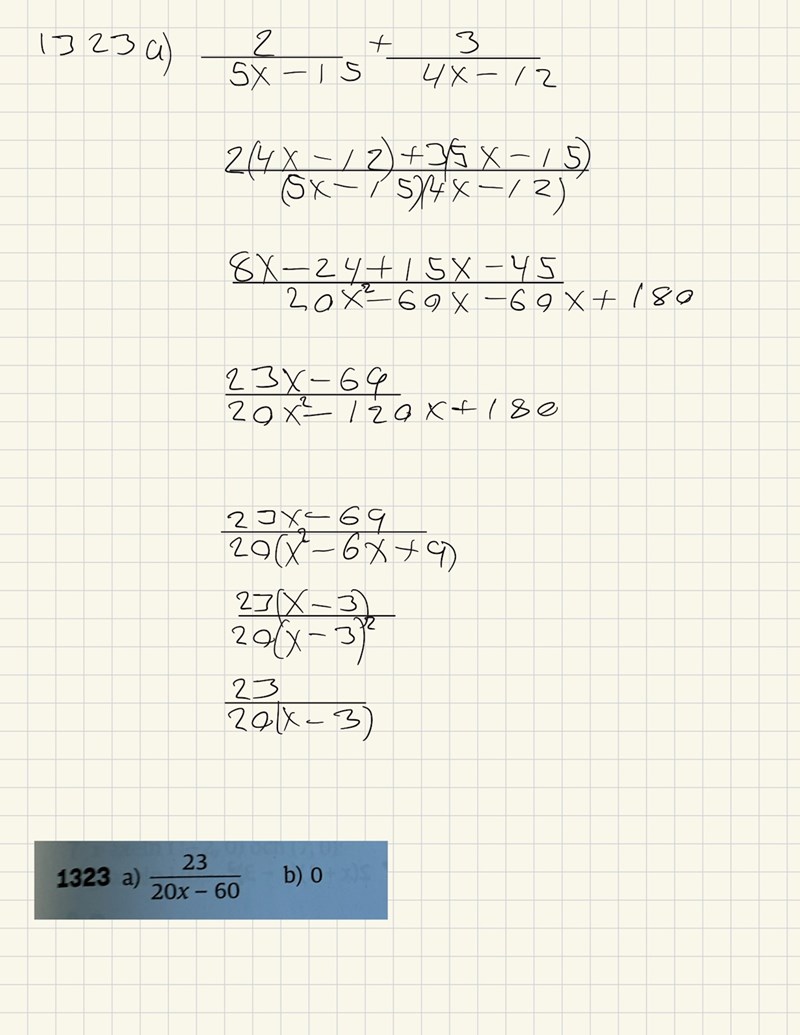 1323 a) 2/(5x-15) + 3/(4x-12)
(2(4x-12)+3(5x-15))/((5x-15)(4x-12))
(8x-24+15x-45)/(20x²-60x-60x+180)
(23x-69)/(20x²-120x+180)
(23x-69)/(20(x²-6x+9))
(23(x-3))/(20(x-3)²)
23/(20(x-3))
1323 a) 23/(20x-60) b) 0